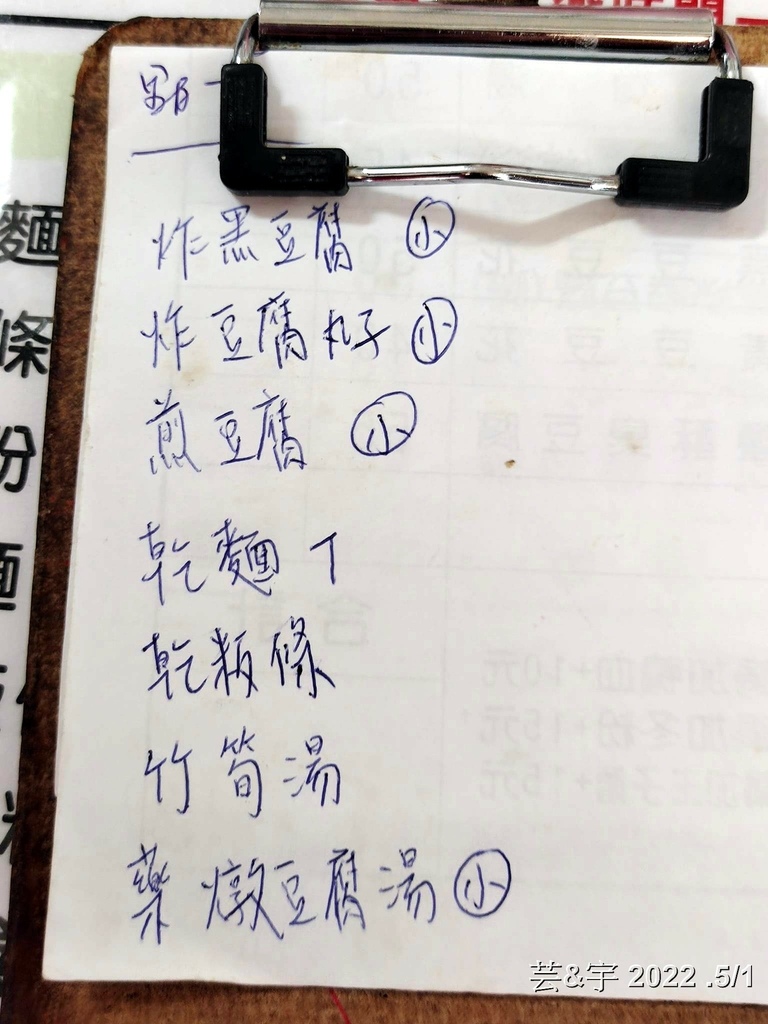 炸黑豆腐 小
炸豆腐丸子 小
煎豆腐 小
乾麵 T
乾粄條
竹筍湯
藥燉豆腐湯 小
麵
條
粉
麵
芸&宇 2022 .5/1